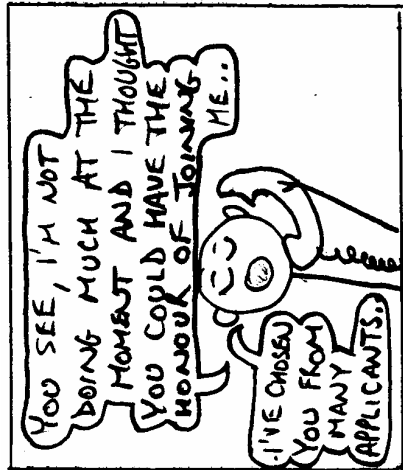 YOU SEE, I'M NOT
DOING MUCH AT THE
MOMENT AND I THOUGHT
YOU COULD HAVE THE
HONOUR OF JOINING
ME..
I'VE CHOSEN
YOU FROM
MANY
APPLICANTS..